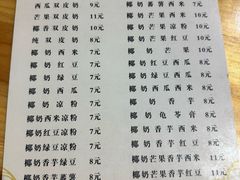 西瓜双皮奶 9元
芒果双皮奶 11元
椰香双皮奶 10元
纯双皮奶 8元
椰奶西米 7元
椰奶红豆 7元
椰奶绿豆 7元
椰奶西瓜 7元
椰奶凉粉 7元
椰奶西米凉粉 7元
椰奶红豆凉粉 7元
椰奶香芋西米 8元
椰奶香芋红豆 8元
椰奶香芋绿豆 8元
椰奶香芋蕃薯 8元
椰奶蕃薯西米 7元
椰奶芒果西米 10元
椰奶芒果凉粉 10元
椰奶芒果 10元
椰奶红豆西瓜 8元
椰奶绿豆西瓜 8元
椰奶西瓜西米 8元
椰奶香芋 8元
椰奶龟苓膏 8元
椰奶西米红豆 7元
椰奶西米绿豆 7元
椰奶芒果香芋西米 11元
椰奶芒果香芋红豆 11元